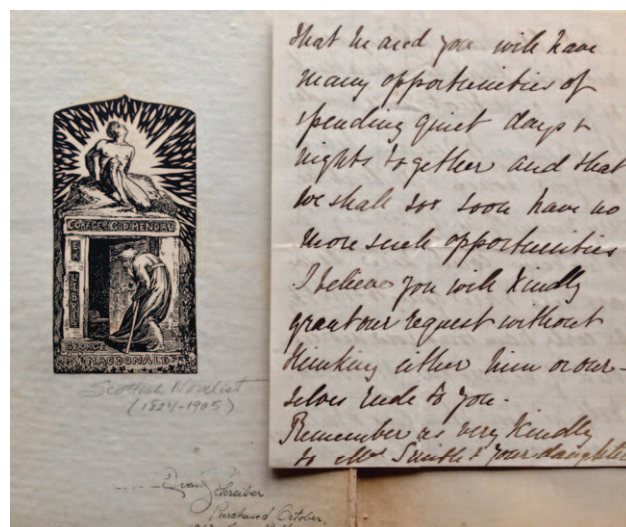 CORAGE! GOD MEND AL
EX
LIBRIS
GEORGE
MACDONALD
Scottish Novelist
(1824-1905)
Schreiber
Purchased October
that he and you will have
many opportunities of
spending quiet days &
nights together and that
we shall so soon have no
more such opportunities
I believe you will kindly
grant our request without
thinking either him or our-
selves rude to you.
Remember us very kindly
to Mrs Smith & your daughter